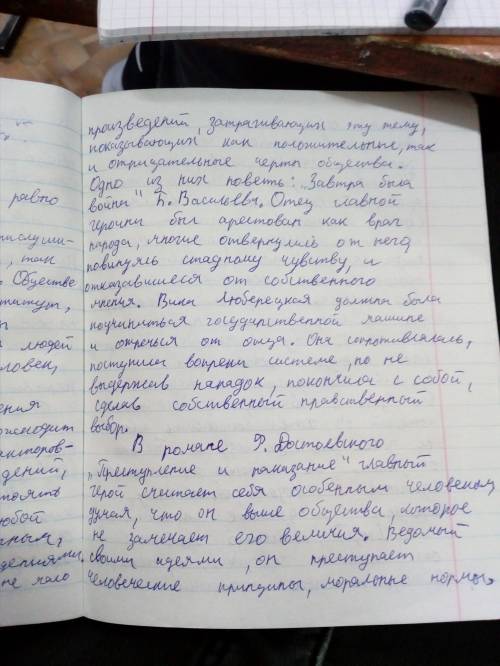 произведений, затрагивающих эту тему,
показывающих как положительные, так
и отрицательные черты общества.
Одно из них повесть: "Завтра была
война" Б. Васильева. Отец главной
героини был арестован как враг
народа, многие отвернулись от него
повинуясь стадному чувству, и
отказавшиеся от собственного
мнения. Вика Люберецкая должна была
подчиниться государственной машине
и отречься от отца. Она сопротивлялась,
поступила вопреки системе, но не
выдержав нападок, покончила с собой,
сделав собственный нравственный
выбор.
В романе Ф. Достоевского
"Преступление и наказание" главный
герой считает себя особенным человеком,
думая, что он выше общества, которое
не замечает его величия. Ведомый
своими идеями, он преступает
человеческие принципы, моральные нормы.
равно
, так
Обществе
людей
ловек,
ения
дений,
любой
не мало